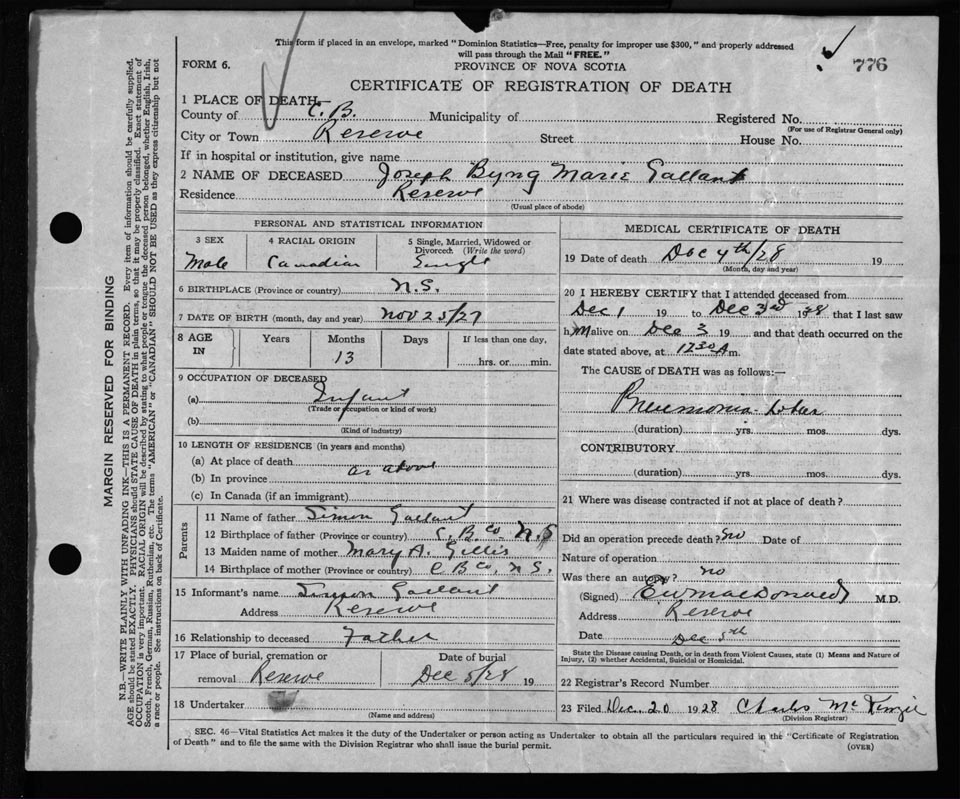 This form if placed in an envelope, marked "Dominion Statistics—Free, penalty for improper use $300," and properly addressed
will pass through the Mail "FREE."
FORM 6.
PROVINCE OF NOVA SCOTIA
776
CERTIFICATE OF REGISTRATION OF DEATH
1 PLACE OF DEATH—
County of C.B. Municipality of Registered No.
(For use of Registrar General only)
City or Town Reserve Street House No.
If in hospital or institution, give name
2 NAME OF DECEASED Joseph Byng Marie Gallant
Residence Reserve
(Usual place of abode)
PERSONAL AND STATISTICAL INFORMATION
3 SEX 4 RACIAL ORIGIN 5 Single, Married, Widowed or
Divorced. (Write the word)
Male Canadian Single
6 BIRTHPLACE (Province or country) N.S.
7 DATE OF BIRTH (month, day and year) Nov 25/27
8 AGE IN Years Months Days If less than one day,
13 hrs. or min.
9 OCCUPATION OF DECEASED
(a) Infant
(Trade or occupation or kind of work)
(b)
(Kind of industry)
10 LENGTH OF RESIDENCE (in years and months)
(a) At place of death as above
(b) In province
(c) In Canada (if an immigrant)
Parents
11 Name of father Simon Gallant
12 Birthplace of father (Province or country) C. B. Co. N.S
13 Maiden name of mother Mary A. Gillis
14 Birthplace of mother (Province or country) C B Co, N S.
15 Informant's name Simon Gallant
Address Reserve
16 Relationship to deceased Father
17 Place of burial, cremation or Date of burial
removal Reserve Dec 5/28 19
18 Undertaker
(Name and address)
MEDICAL CERTIFICATE OF DEATH
19 Date of death Dec 4th/28 19
(Month, day and year)
20 I HEREBY CERTIFY that I attended deceased from
Dec 1 19 to Dec 3rd 1928 that I last saw
h im alive on Dec 3 19 and that death occurred on
date stated above, at 1230 A m.
The CAUSE of DEATH was as follows:—
Pneumonia Lobar
(duration) yrs. mos. dys.
CONTRIBUTORY
(duration) yrs. mos. dys.
21 Where was disease contracted if not at place of death?
Did an operation precede death? no Date of
Nature of operation
Was there an autopsy? no
(Signed) E W MacDonald M.D.
Address Reserve
Date Dec 5th
State the Disease causing Death, or in death from Violent Causes, state (1) Means and Nature of
Injury, (2) whether Accidental, Suicidal or Homicidal.
22 Registrar's Record Number
23 Filed Dec. 20 1928 Charles McKenzie
(Division Registrar)
SEC. 46—Vital Statistics Act makes it the duty of the Undertaker or person acting as Undertaker to obtain all the particulars required in the "Certificate of Registration
of Death" and to file the same with the Division Registrar who shall issue the burial permit.
(OVER)
MARGIN RESERVED FOR BINDING
N.B.—WRITE PLAINLY WITH UNFADING INK—THIS IS A PERMANENT RECORD. Every item of information should be carefully supplied.
AGE should be stated EXACTLY. PHYSICIANS should STATE CAUSE OF DEATH in plain terms, so that it may be properly classified. Exact statement of
OCCUPATION is very important. RACIAL ORIGIN will be described by stating to what people or tongue the deceased person belonged, whether English, Irish,
Scotch, French, German, Russian, Ruthenian, etc. The terms "AMERICAN" or "CANADIAN" SHOULD NOT BE USED as they express citizenship but not
a race or people. See instructions on back of Certificate.